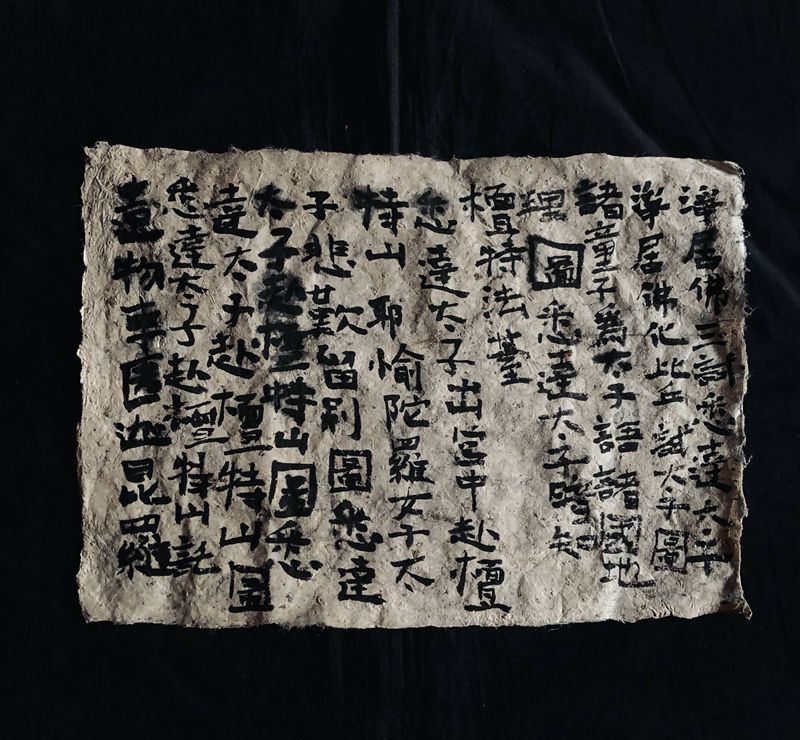 淨居佛三試悉達太子
淨居佛化比丘試太子圖
諸童子爲太子語諸國地
理圖悉達太子時知
檀特法臺
悉達太子出宮中赴檀
特山耶愉陀羅女子太
子悲留别圖悉達
太子赴檀特山圖悉
達太子赴檀特山圖
悉達太子赴檀特山託
遺物車匿迦昆羅